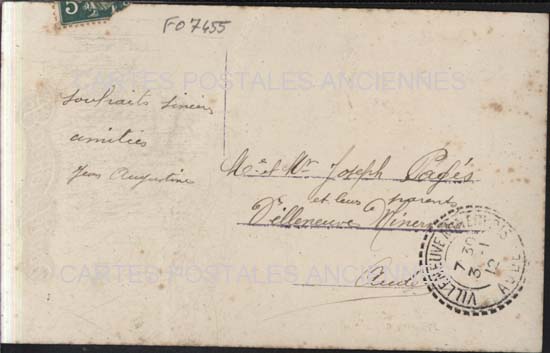 5
FO 7455
CARTES POSTALES ANCIENNES
souhaits sincères
amitiés
Jean Augustine
Me et Mr Joseph Pagés
et leurs parents
Villeneuve Minervois
Aude
VILLENEUVE-MINERVOIS
7 30
3 - 1
12
AUDE
CARTES POSTALES ANCIENNES